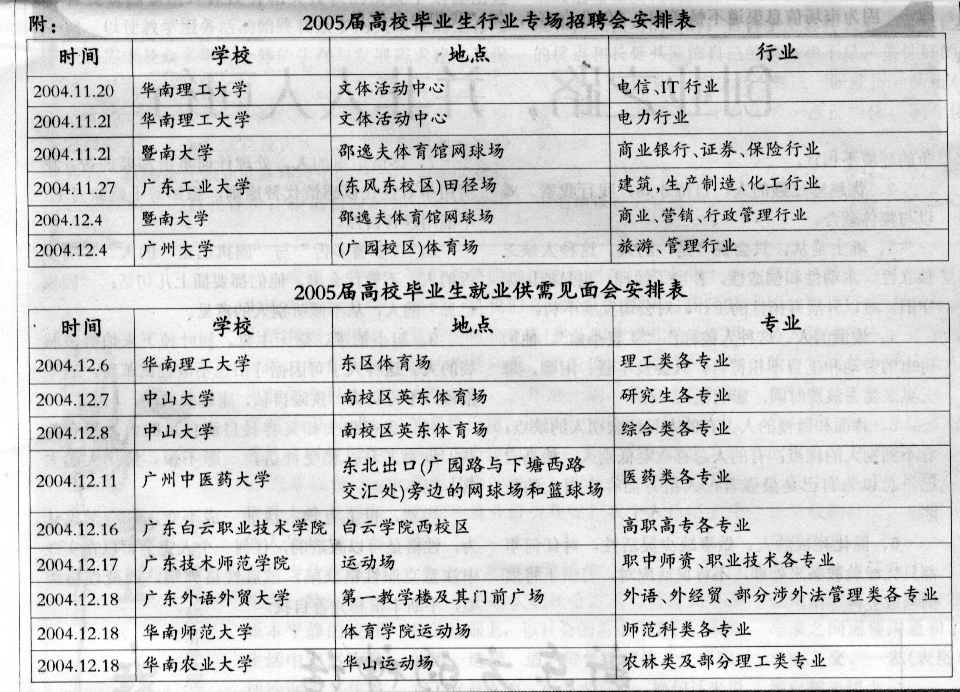 附：
2005届高校毕业生行业专场招聘会安排表
时间 学校 地点 行业
2004.11.20 华南理工大学 文体活动中心 电信、IT行业
2004.11.21 华南理工大学 文体活动中心 电力行业
2004.11.21 暨南大学 邵逸夫体育馆网球场 商业银行、证券、保险行业
2004.11.27 广东工业大学 (东风东校区)田径场 建筑,生产制造、化工行业
2004.12.4 暨南大学 邵逸夫体育馆网球场 商业、营销、行政管理行业
2004.12.4 广州大学 (广园校区)体育场 旅游、管理行业
2005届高校毕业生就业供需见面会安排表
时间 学校 地点 专业
2004.12.6 华南理工大学 东区体育场 理工类各专业
2004.12.7 中山大学 南校区英东体育场 研究生各专业
2004.12.8 中山大学 南校区英东体育场 综合类各专业
2004.12.11 广州中医药大学 东北出口(广园路与下塘西路
交汇处)旁边的网球场和篮球场 医药类各专业
2004.12.16 广东白云职业技术学院 白云学院西校区 高职高专各专业
2004.12.17 广东技术师范学院 运动场 职中师资、职业技术各专业
2004.12.18 广东外语外贸大学 第一教学楼及其门前广场 外语、外经贸、部分涉外法管理类各专业
2004.12.18 华南师范大学 体育学院运动场 师范科类各专业
2004.12.18 华南农业大学 华山运动场 农林类及部分理工类专业